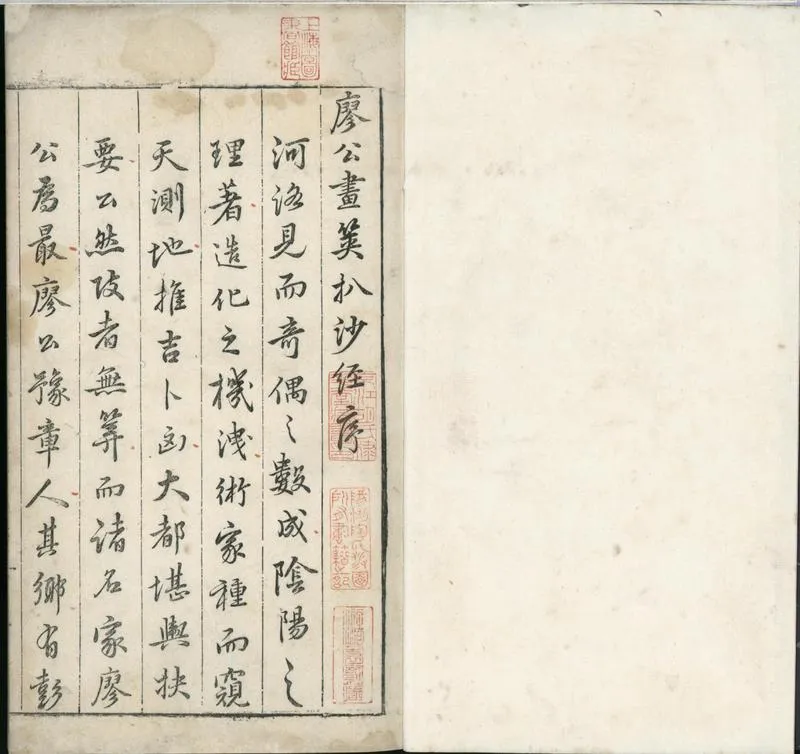 廖公畫筴扒沙經序
河洛見而奇偶之數成陰陽之
理著造化之機洩術家種而窺
天測地推吉卜凶大都堪輿抉
要公然攷者無筭而諸名家廖
公為最廖公豫章人其鄉有彭
上海圖
書館藏